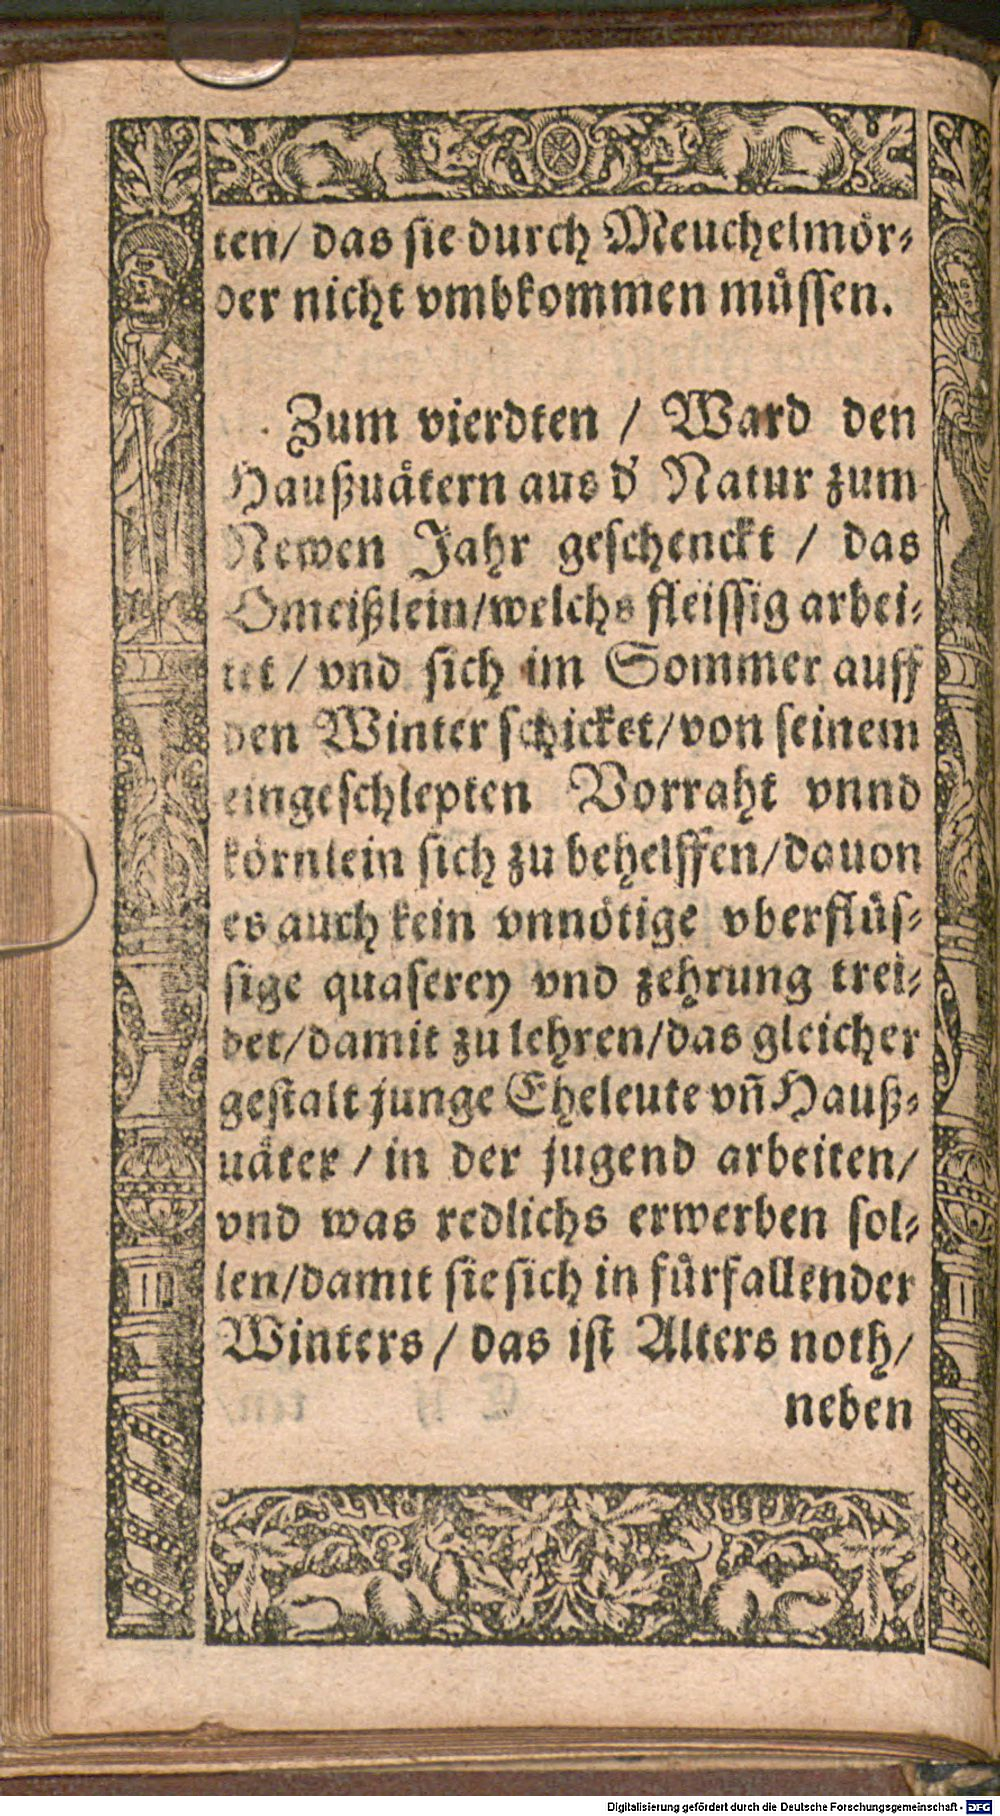 ten/ das sie durch Meuchelmör⸗
der nicht vmbkommen müssen.
Zum vierdten / Ward den
Haußuätern aus d' Natur zum
Newen Jahr geschenckt / das
Omeißlein/welchs fleissig arbei⸗
tet / vnd sich im Sommer auff
den Winter schicket/von seinem
eingeschlepten Vorraht vnnd
körnlein sich zu behelffen/dauon
es auch kein vnnötige vberflüs⸗
sige quaserey vnd zehrung trei⸗
bet/damit zu lehren/das gleicher
gestalt junge Eheleute vñ Hauß⸗
uäter / in der jugend arbeiten/
vnd was redlichs erwerben sol⸗
len/damit sie sich in fürfallender
Winters / das ist Alters noth/
neben
Digitalisierung gefördert durch die Deutsche Forschungsgemeinschaft - DFG